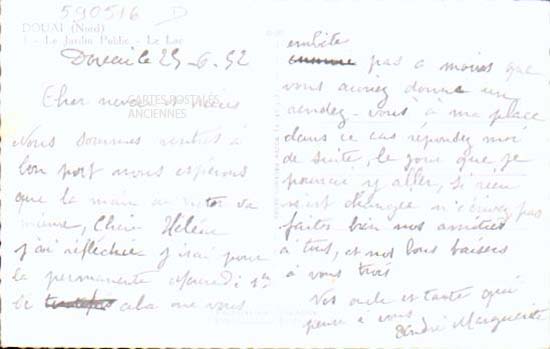 590516 D
DOUAI (Nord)
1 - Le Jardin Public - Le Lac
Douai le 25-6-52
Cher neveu et nièces
CARTES POSTALES
ANCIENNES
Nous sommes rentrés à
bon port nous espérons
que la main de Victor va
mieux, Chère Hélène
j'ai réfléchie j'irai pour
la permanente
cela
vous
embête
pas a moins que
vous auriez donné un
rendez-vous à ma place
dans ce cas repondez moi
de suite, le jour que je
pourrai y aller, si rien
n'est changée n'écrivez pas
faites bien nos amitiés
à tous, et nos bons baisers
à vous trois
Vos oncle et tante qui
pense à vous
André Marguerite